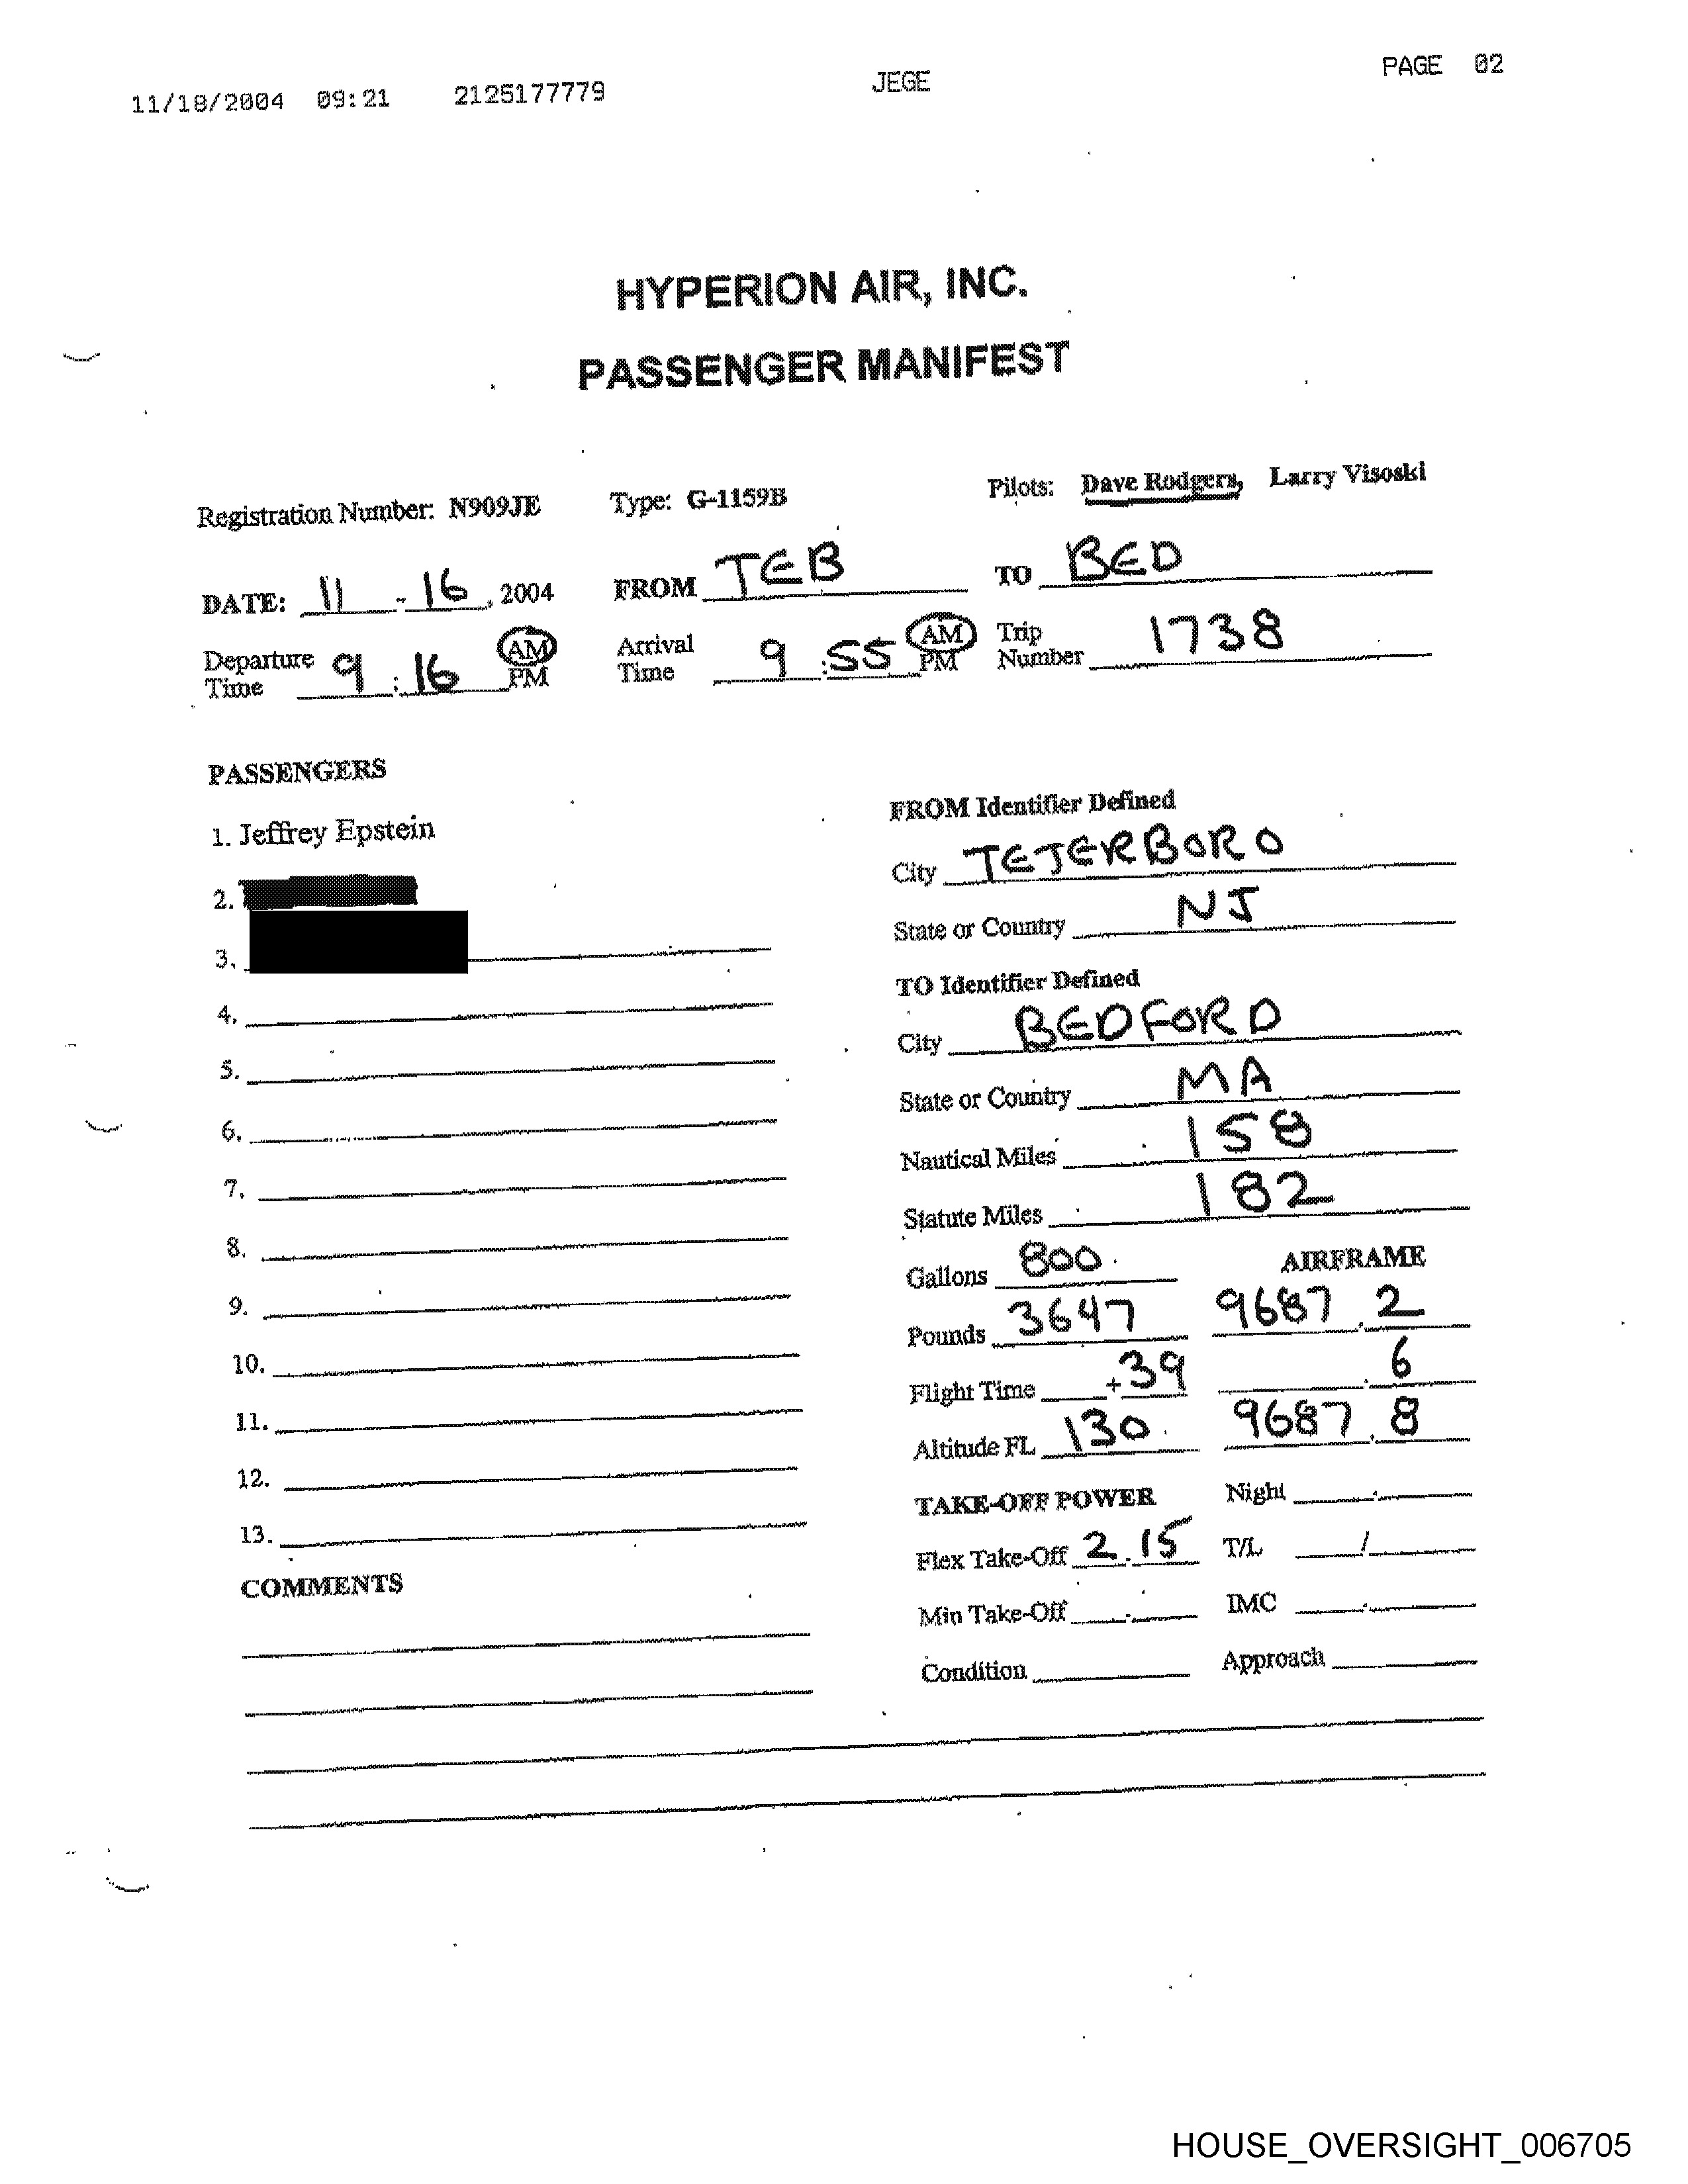 11/18/2004 09:21 2125177779 JEGE PAGE 02
HYPERION AIR, INC.
PASSENGER MANIFEST
Registration Number: N909JE Type: G-1159B Pilots: Dave Rodgers, Larry Visoski
DATE: 11 - 16, 2004 FROM TEB TO BED
Departure Time 9 : 16 AM PM Arrival Time 9 : 55 AM PM Trip Number 1738
PASSENGERS
1. Jeffrey Epstein
2.
3.
4.
5.
6.
7.
8.
9.
10.
11.
12.
13.
COMMENTS
FROM Identifier Defined
City TEJERBORO
State or Country NJ
TO Identifier Defined
City BEDFORD
State or Country MA
Nautical Miles 158
Statute Miles 182
Gallons 800 AIRFRAME
Pounds 3647 9687.2
Flight Time +39 .6
Altitude FL 130 9687.8
TAKE-OFF POWER Night .
Flex Take-Off 2.15 T/L /
Min Take-Off . IMC .
Condition Approach
HOUSE_OVERSIGHT_006705